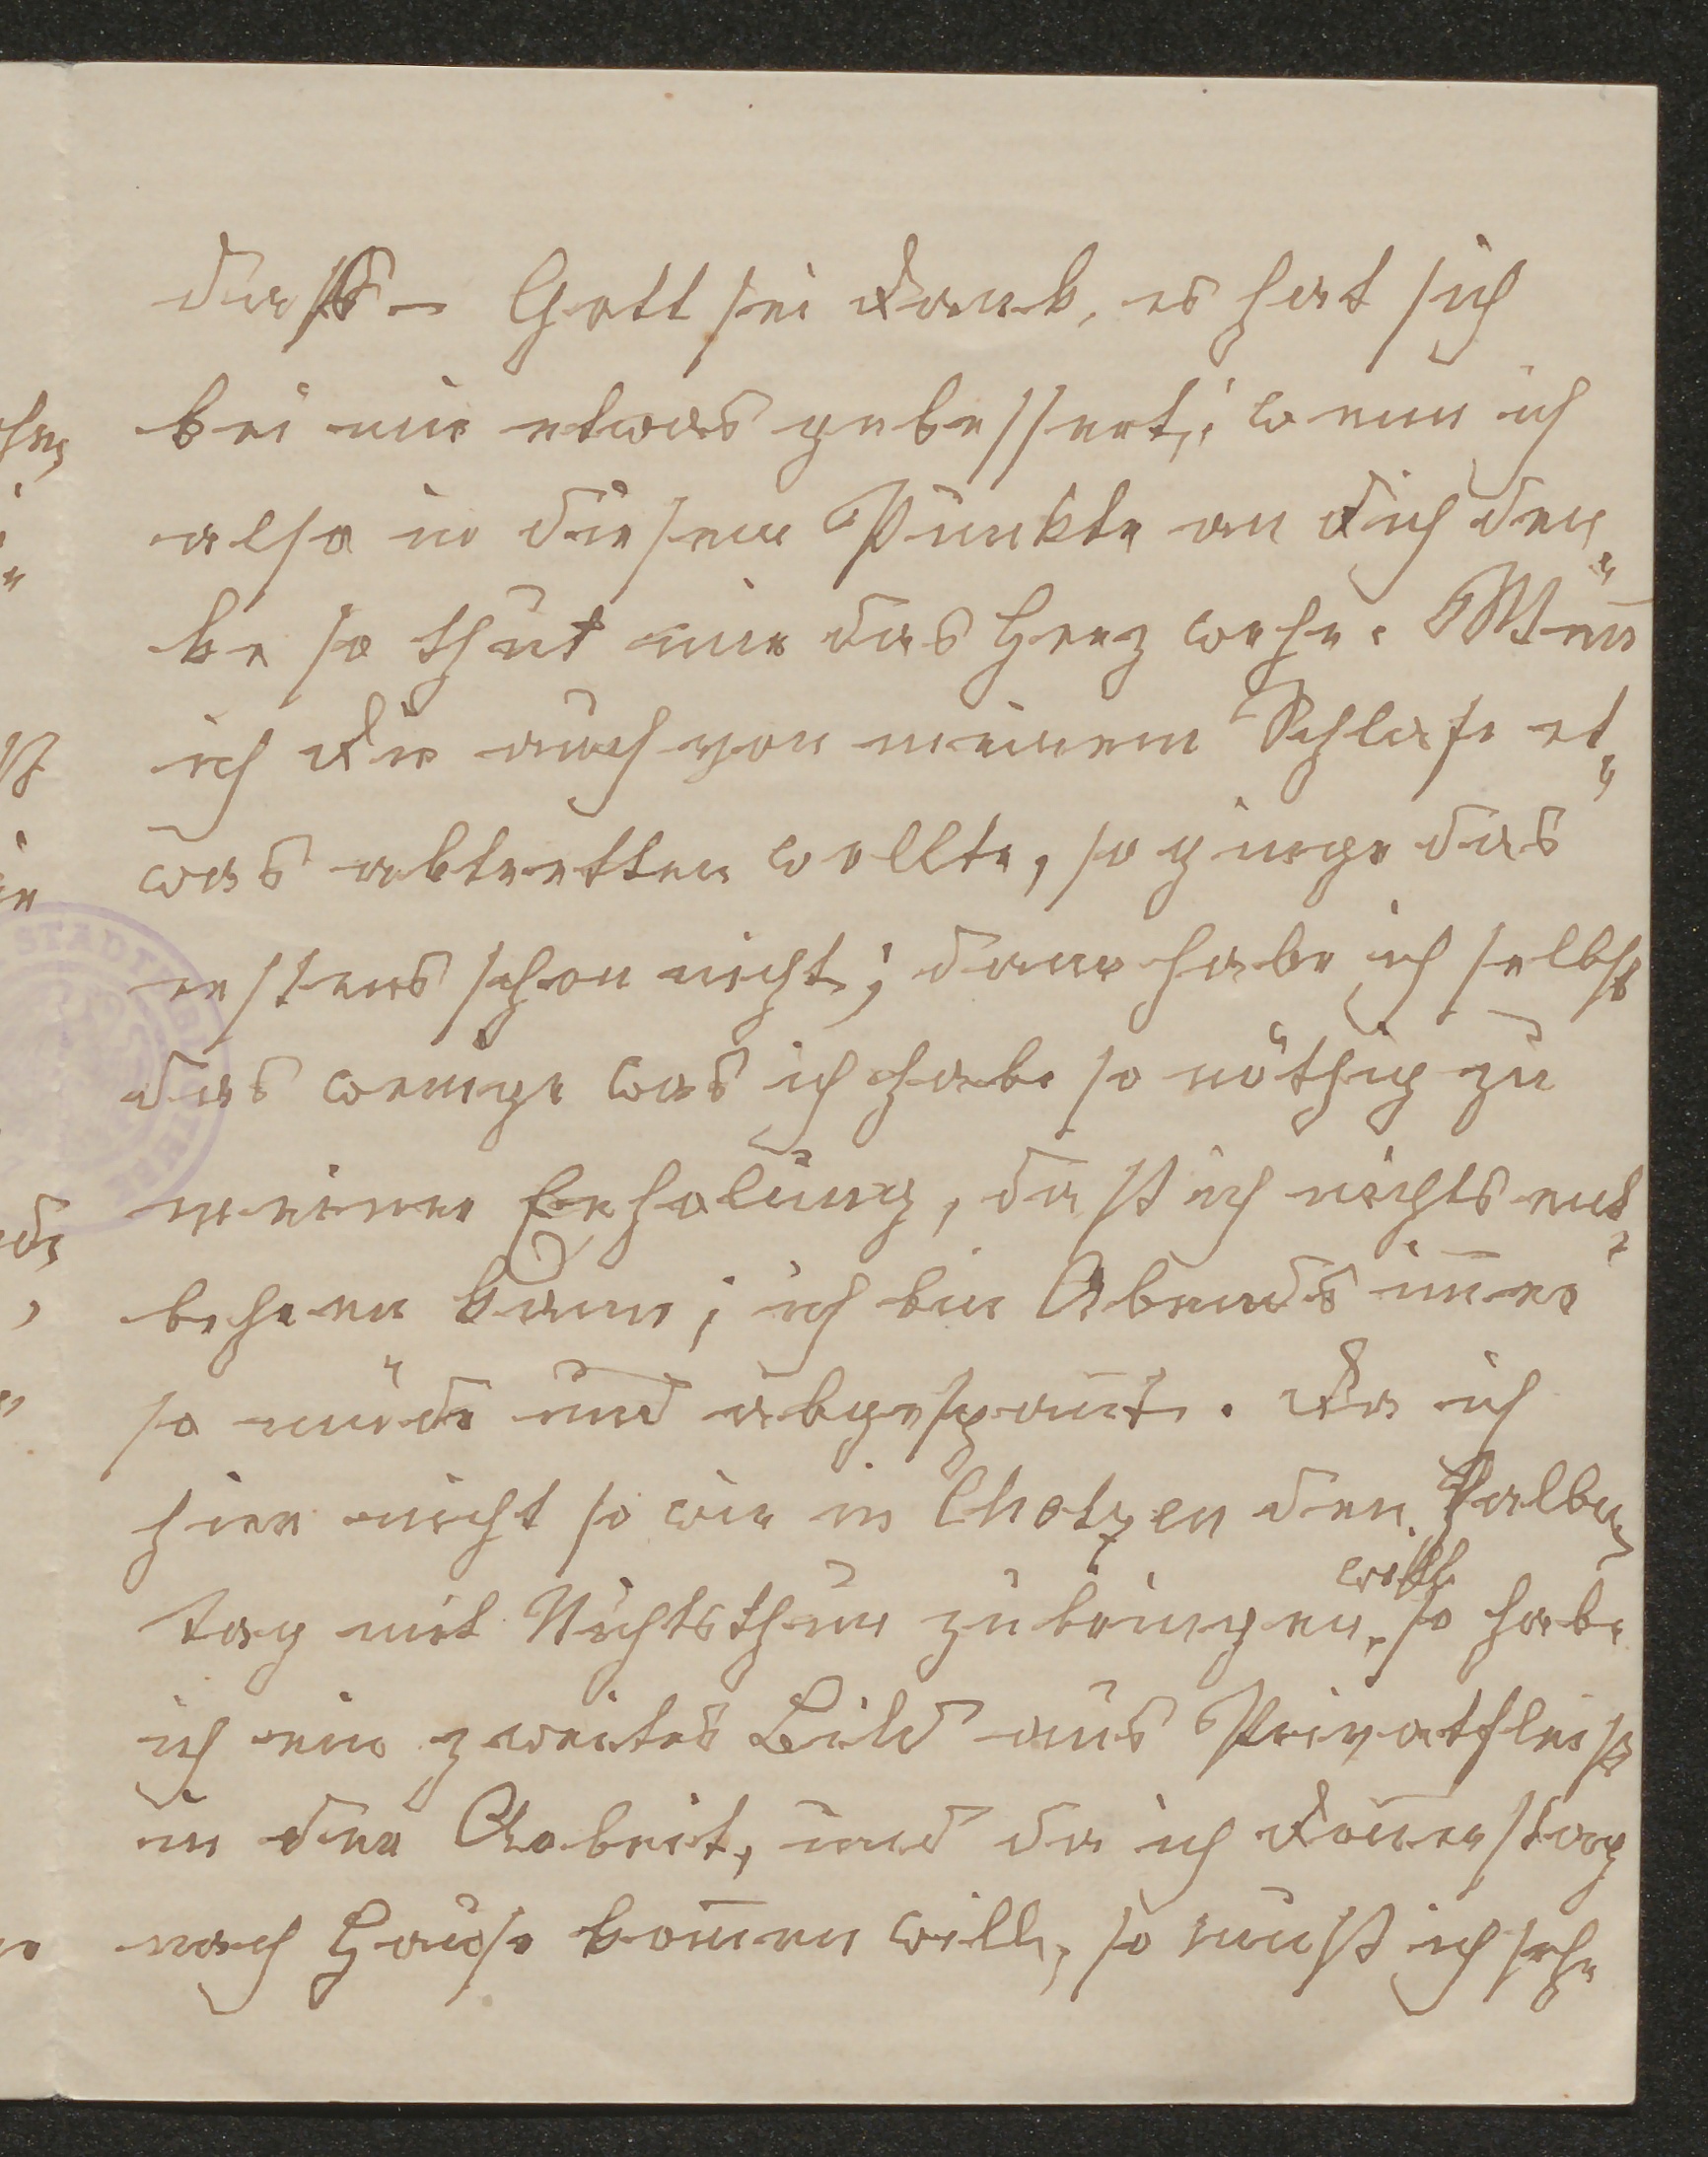 dass – Gott sei Dank, es hat sich
bei mir etwas gebessert; wenn ich
also in diesem Punkte an Dich den„
ke so thut mir das Herz wehe. Wen̅
ich Dir auch von meinem Schlafe et„
was abtretten wollte, so ginge das
erstens schon nicht; dann habe ich selbst
das wenige was ich habe so nöthig zu
meiner Erholung, daß ich nichts ent„
behren kann; ich bin Abends im̅er
so müde und abgespan̅t. Da ich
hier nicht so wie in Chotzen den halben
will
Tag mit Nichtsthun zubringen, so habe
ich ein zweites Bild aus Privatfleiß
in der Arbeit, und da ich Don̅erstag
nach Hause kom̅en will, so muß ich sehr
STADT